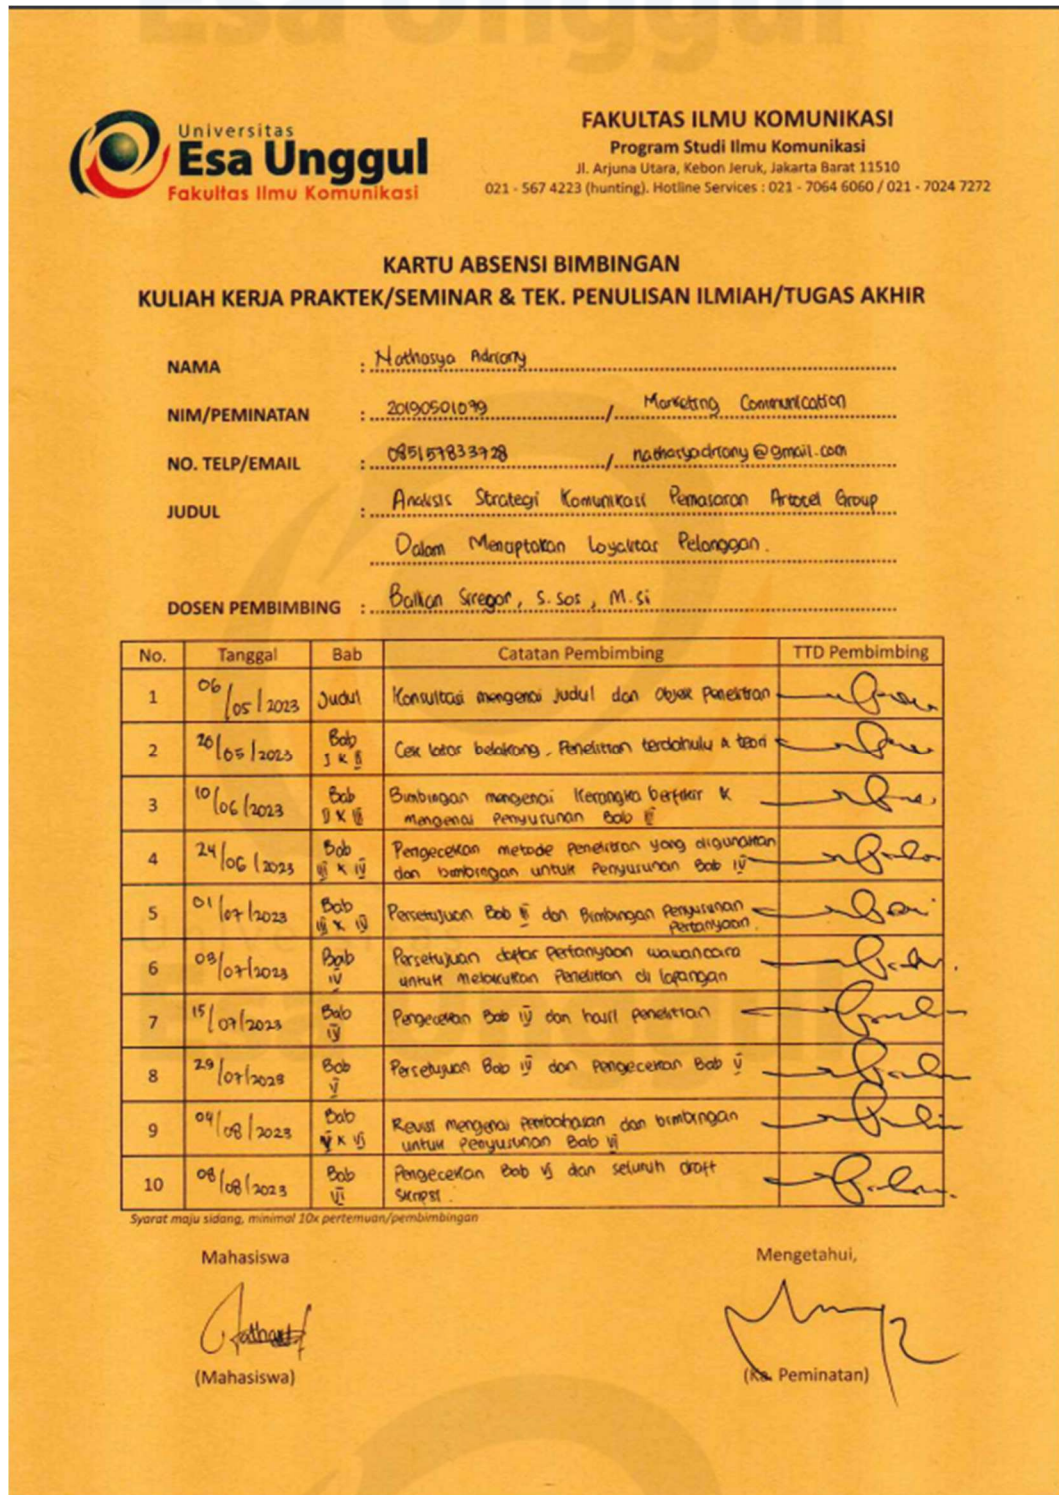 Esa Unggul
Universitas
Esa Unggul
Fakultas Ilmu Komunikasi
FAKULTAS ILMU KOMUNIKASI
Program Studi Ilmu Komunikasi
Jl. Arjuna Utara, Kebon Jeruk, Jakarta Barat 11510
021 - 567 4223 (hunting). Hotline Services : 021 - 7064 6060 / 021 - 7024 7272
KARTU ABSENSI BIMBINGAN
KULIAH KERJA PRAKTEK/SEMINAR & TEK. PENULISAN ILMIAH/TUGAS AKHIR
NAMA : Nathasya Adriany
NIM/PEMINATAN : 20190501099 / Marketing Communication
NO. TELP/EMAIL : / nathasyadriany@gmail.com
JUDUL : Analisis Strategi Komunikasi Pemasaran Artotel Group
Dalam Menciptakan Loyalitas Pelanggan.
DOSEN PEMBIMBING : Siregar, S.Sos, M.Si
No. Tanggal Bab Catatan Pembimbing TTD Pembimbing
1 06/05/2023 Judul Konsultasi mengenai Judul dan Objek Penelitian
2 20/05/2023 Bab I & II Cek latar belakang, Penelitian terdahulu & teori
3 10/06/2023 Bab Bimbingan mengenai Kerangka berfikir &
mengenai Penyusunan Bab
4 24/06/2023 Bab III & IV Pengecekan metode Penelitian yang digunakan
dan bimbingan untuk Penyusunan Bab IV
5 01/07/2023 Bab III & IV Persetujuan Bab dan Bimbingan Penyusunan
Pertanyaan.
6 /07/2023 Bab IV Persetujuan daftar Pertanyaan wawancara
untuk melakukan Penelitian di lapangan
7 15/07/2023 Bab IV Pengecekan Bab IV dan hasil Penelitian
8 29/07/2023 Bab V Persetujuan Bab IV dan Pengecekan Bab V
9 04/08/2023 Bab V & VI Revisi mengenai Pembahasan dan bimbingan
untuk Penyusunan Bab VI
10 08/08/2023 Bab VI Pengecekan Bab VI dan seluruh draft
Skripsi.
Syarat maju sidang, minimal 10x pertemuan/pembimbingan
Mahasiswa Mengetahui,
(Mahasiswa) (Ka. Peminatan)